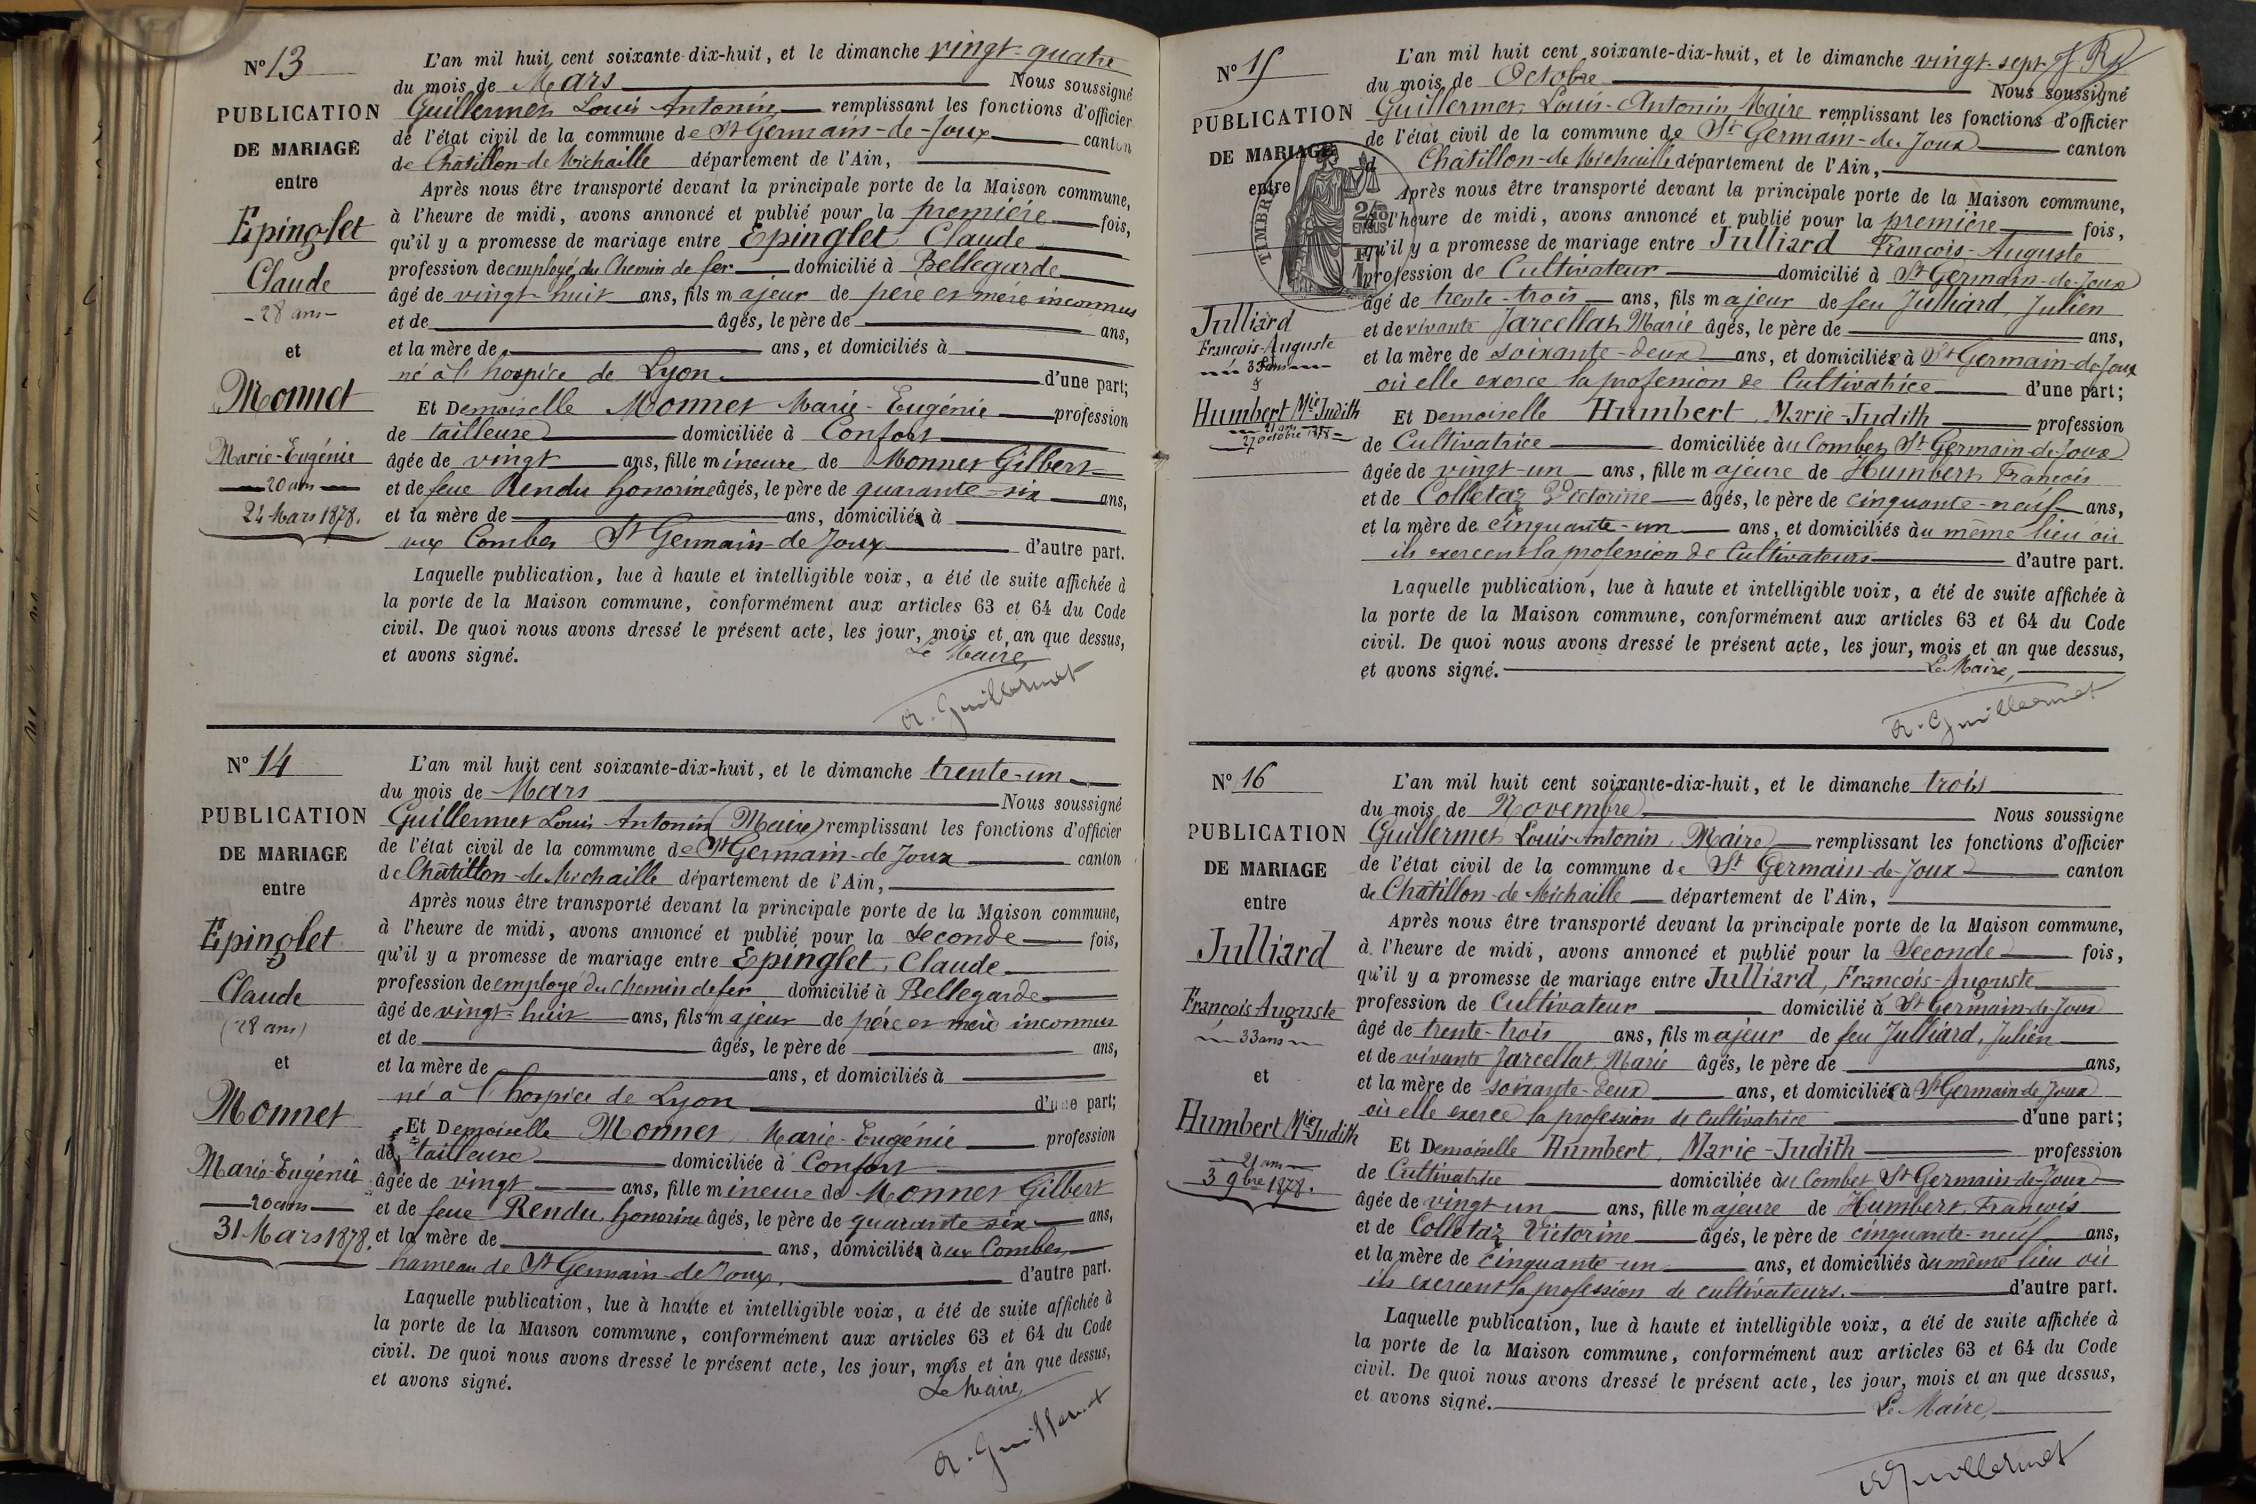 N° 13
PUBLICATION
DE MARIAGE
entre
Epinglet
Claude
- 28 ans -
et
Monnet
Marie-Eugénie
20 ans
24 Mars 1878.
L'an mil huit cent soixante-dix-huit, et le dimanche vingt-quatre
du mois de Mars Nous soussigné
Guillermet Louis Antonin remplissant les fonctions d'officier
de l'état civil de la commune de St Germain-de-Joux canton
de Châtillon-de-Michaille département de l'Ain,
Après nous être transporté devant la principale porte de la Maison commune,
à l'heure de midi, avons annoncé et publié pour la première fois,
qu'il y a promesse de mariage entre Epinglet Claude
profession de employé du Chemin de fer domicilié à Bellegarde
âgé de vingt-huit ans, fils majeur de père et mère inconnus
et de âgés, le père de ans,
et la mère de ans, et domiciliés à
né à l'hospice de Lyon d'une part;
Et Demoiselle Monnet Marie-Eugénie profession
de tailleuse domiciliée à Confort
âgée de vingt ans, fille mineure de Monnet Gilbert
et de feue Rendu honorine âgés, le père de quarante-six ans,
et la mère de ans, domicilié à
aux Combes St Germain-de-Joux d'autre part.
Laquelle publication, lue à haute et intelligible voix, a été de suite affichée à
la porte de la Maison commune, conformément aux articles 63 et 64 du Code
civil. De quoi nous avons dressé le présent acte, les jour, mois et an que dessus,
et avons signé.
Le Maire,
A. Guillermet
N° 14
PUBLICATION
DE MARIAGE
entre
Epinglet
Claude
(28 ans)
et
Monnet
Marie-Eugénie
20 ans
31 Mars 1878.
L'an mil huit cent soixante-dix-huit, et le dimanche trente-un
du mois de Mars Nous soussigné
Guillermet Louis Antonin (Maire) remplissant les fonctions d'officier
de l'état civil de la commune de St Germain-de-Joux canton
de Châtillon-de-Michaille département de l'Ain,
Après nous être transporté devant la principale porte de la Maison commune,
à l'heure de midi, avons annoncé et publié pour la seconde fois,
qu'il y a promesse de mariage entre Epinglet, Claude
profession de employé du Chemin de fer domicilié à Bellegarde
âgé de vingt-huit ans, fils majeur de père et mère inconnus
et de âgés, le père de ans,
et la mère de ans, et domiciliés à
né à l'hospice de Lyon d'une part;
Et Demoiselle Monnet, Marie-Eugénie profession
de tailleuse domiciliée à Confort
âgée de vingt ans, fille mineure de Monnet Gilbert
et de feue Rendu, honorine âgés, le père de quarante six ans,
et la mère de ans, domicilié aux Combes
hameau de St Germain-de-Joux. d'autre part.
Laquelle publication, lue à haute et intelligible voix, a été de suite affichée à
la porte de la Maison commune, conformément aux articles 63 et 64 du Code
civil. De quoi nous avons dressé le présent acte, les jour, mois et an que dessus,
et avons signé.
Le Maire,
A. Guillermet
N° 15
PUBLICATION
DE MARIAGE
entre
TIMBRE
Julliard
François-Auguste
33 ans
&
Humbert Mie Judith
21 ans
27 octobre 1878
L'an mil huit cent soixante-dix-huit, et le dimanche vingt-sept
du mois de Octobre Nous soussigné
Guillermet, Louis-Antonin, Maire remplissant les fonctions d'officier
de l'état civil de la commune de St Germain-de-Joux canton
d Châtillon-de-Michaille département de l'Ain,
Après nous être transporté devant la principale porte de la Maison commune,
à l'heure de midi, avons annoncé et publié pour la première fois,
qu'il y a promesse de mariage entre Julliard François-Auguste
profession de Cultivateur domicilié à St Germain-de-Joux
âgé de trente-trois ans, fils majeur de feu Julliard, Julien
et de vivante Jarcellat, Marie âgés, le père de ans,
et la mère de soixante-deux ans, et domiciliés à St Germain-de-Joux
où elle exerce la profession de Cultivatrice d'une part;
Et Demoiselle Humbert, Marie-Judith profession
de Cultivatrice domiciliée au Combet, St Germain-de-Joux
âgée de vingt-un ans, fille majeure de Humbert, François
et de Colletaz Victorine âgés, le père de cinquante-neuf ans,
et la mère de cinquante-un ans, et domiciliés au même lieu où
ils exercent la profession de Cultivateurs d'autre part.
Laquelle publication, lue à haute et intelligible voix, a été de suite affichée à
la porte de la Maison commune, conformément aux articles 63 et 64 du Code
civil. De quoi nous avons dressé le présent acte, les jour, mois et an que dessus,
et avons signé.
Le Maire,
A. Guillermet
N° 16
PUBLICATION
DE MARIAGE
entre
Julliard
François Auguste
33 ans
et
Humbert Mie Judith
21 ans
3 9bre 1878.
L'an mil huit cent soixante-dix-huit, et le dimanche trois
du mois de Novembre Nous soussigne
Guillermet, Louis-Antonin, Maire remplissant les fonctions d'officier
de l'état civil de la commune de St Germain-de-Joux canton
de Châtillon-de-Michaille département de l'Ain,
Après nous être transporté devant la principale porte de la Maison commune,
à l'heure de midi, avons annoncé et publié pour la Seconde fois,
qu'il y a promesse de mariage entre Julliard, François-Auguste
profession de Cultivateur domicilié à St Germain-de-Joux
âgé de trente-trois ans, fils majeur de feu Julliard, Julien
et de vivante Jarcellat, Marie âgés, le père de ans,
et la mère de soixante-deux ans, et domiciliés à St Germain de Joux
où elle exerce la profession de cultivatrice d'une part;
Et Demoiselle Humbert, Marie-Judith profession
de Cultivatrice domiciliée au Combet St Germain-de-Joux
âgée de vingt-un ans, fille majeure de Humbert, François
et de Colletaz Victorine âgés, le père de cinquante-neuf ans,
et la mère de cinquante-un ans, et domiciliés au même lieu où
ils exercent la profession de cultivateurs. d'autre part.
Laquelle publication, lue à haute et intelligible voix, a été de suite affichée à
la porte de la Maison commune, conformément aux articles 63 et 64 du Code
civil. De quoi nous avons dressé le présent acte, les jour, mois et an que dessus,
et avons signé.
Le Maire,
A. Guillermet